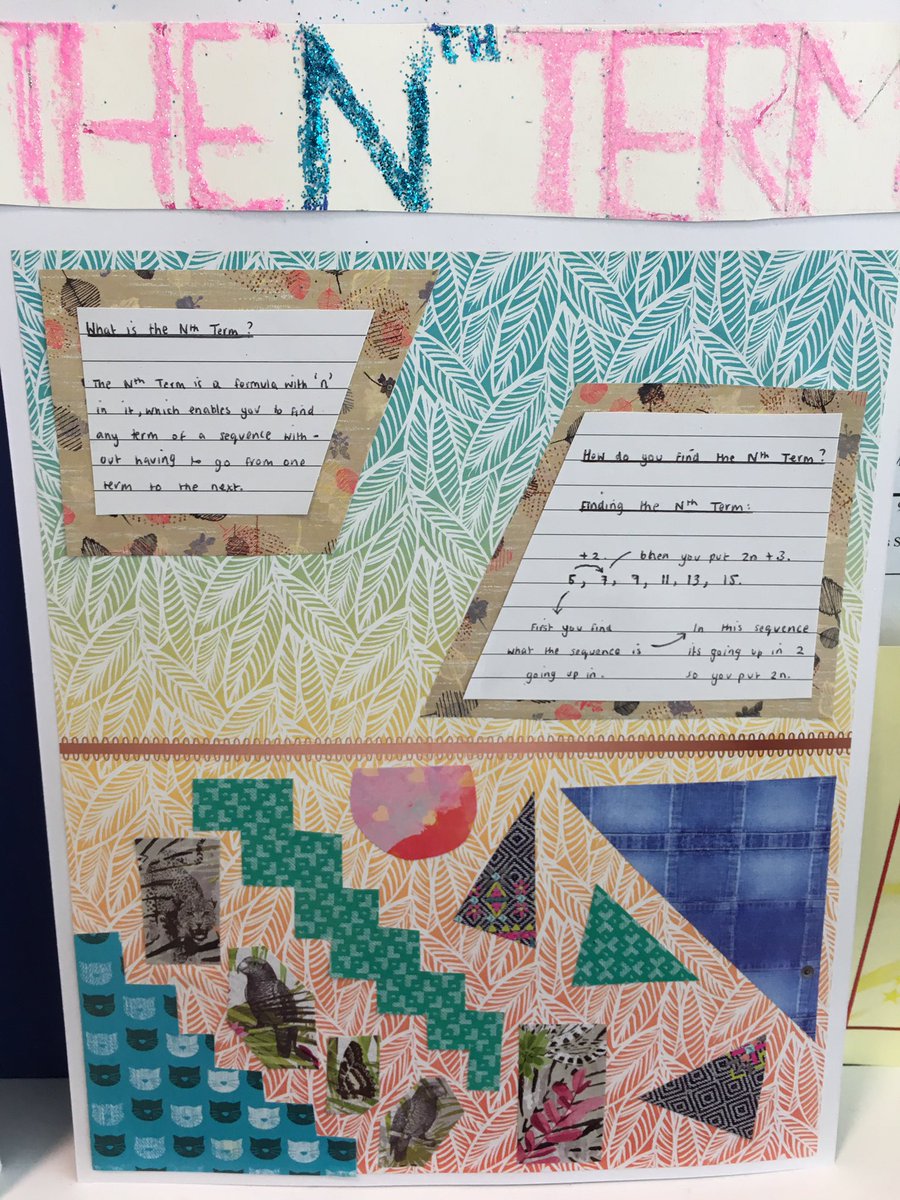 THE Nᵗʰ TERM
What is the Nth Term?
The Nth Term is a formula with 'n'
in it, which enables you to find
any term of a sequence with-
out having to go from one
term to the next.
How do you find the Nth Term?
Finding the Nth Term:
+2. then you put 2n +3.
5, 7, 9, 11, 13, 15.
First you find
what the sequence is
going up in.
In this sequence
its going up in 2
so you put 2n.